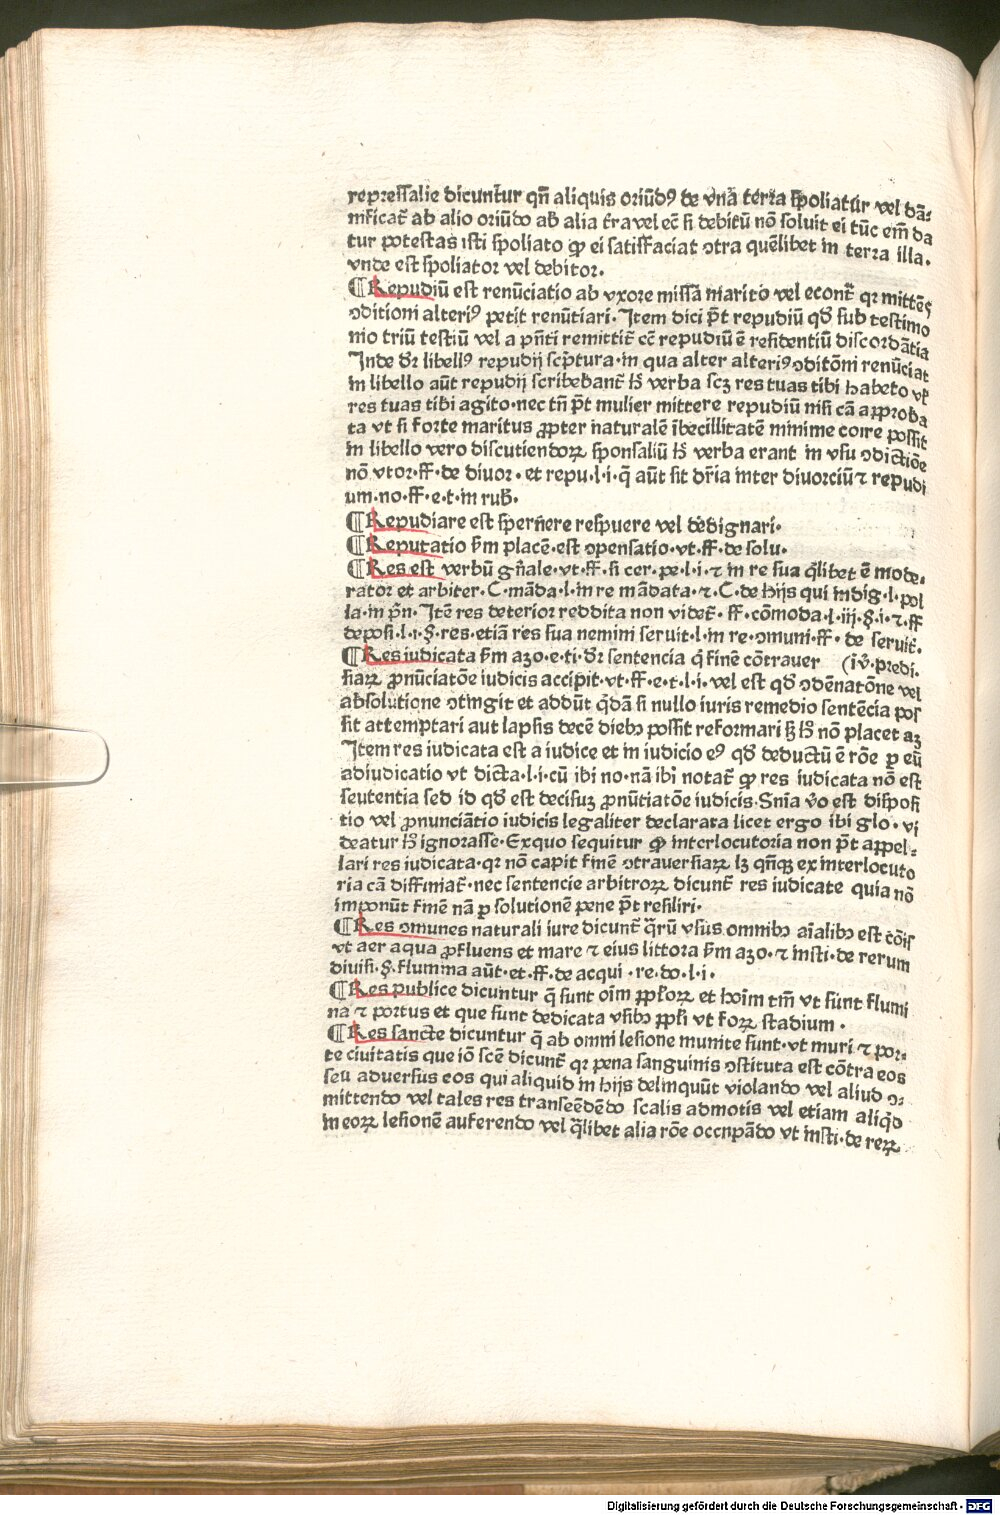 repressalie dicunt̃ur qñ aliquis oriũdꝰ de vnã terra spoliatũr vel dã⸗
nificat̃ ab alio oriũdo ab alia t̃ra vel ec̃ si debitũ nõ soluit ei tũc em̃ da
tur potestas isti spoliato ꝙ ei satisfaciat ↄtra quẽlibet in terra illa.
vnde est spoliator vel debitor.
¶ Repudiũ est renũciatio ab vxore missa marito vel econt̃ qꝛ mittẽs
ↄditioni alteriꝰ petit renũtiari. Item dici p̃t repudiũ qd̃ sub testimo
nio triũ testiũ vel a pñti remittit̃ cẽ repudiũ ẽ residentiũ discordãtia
Inde dr̃ libellꝰ repudij scp̃tura·in qua alter alteriꝰ ↄditõni renũciat
in libello aũt repudij scribebant̃ hẽ verba scꝫ res tuas tibi habeto vl̃
res tuas tibi agito·nec tñ p̃t mulier mittere repudiũ nisi cã aꝓproba
ta vt si forte maritus ꝓpter naturalẽ ĩbecillitatẽ minime coire possit
in libello vero discutiendoꝝ sponsaliũ hẽ verba erant in vsu ↄdictiõe
nõ vtor·ff·de diuor· et repu·l·i·q̃ aũt sit dr̃ia inter diuorciũ ⁊ repudi
um·no·ff·e·t·in rub̃·
¶ Repudiare est spernere respuere vel dedignari·
¶ Reputatio s̃m placẽ·est ↄpensatio·vt·ff·de solu·
¶ Res est verbũ gñale·vt·ff·si cer·pe·l·i·⁊ in re sua q̃libet ẽ mode⸗
rator et arbiter·C·mãda·l·in re mãdata·⁊·C·de hijs qui indig·l·pol
la·in pñ· Itẽ res deterior reddita non videt̃· ff·cõmoda·l·iij·§·i·⁊·ff
deposi·l·i·§·res·etiã res sua nemini seruit·l·in re·ↄmuni·ff· de seruit̃·
¶ Res iudicata s̃m azo·e·ti·dr̃ sentencia q̃ finẽ cõtrauer (iṽ·predi·
siaꝝ ꝓnũciatõe iudicis accipit·vt·ff·e·t·l·i·vel est qd̃ ↄdẽnatõne vel
absolutione ↄtingit et addũt q̃dã si nullo iuris remedio sentẽcia pos
sit attemptari aut lapsis decẽ dieb̃ꝫ possit reformari ꝫ hẽ nõ placet aꝫ
Item res iudicata est a iudice et in iudicio eꝰ qd̃ deductũ ẽ rõe ꝑ eũ
adiudicatio vt dicta·l·i·cũ ibi no·nã ibi notat̃ ꝙ res iudicata nõ est
seutentia sed id qd̃ est decisuꝫ ꝓnũtiatõe iudicis·Snĩa ṽo est disposi
tio vel ꝓnunciãtio iudicis legaliter declarata licet ergo ibi glo· vi
deatur hẽ ignorasse·Exquo sequitur ꝙ interlocutoria non p̃t appel⸗
lari res iudicata·qꝛ nõ capit finẽ ↄtrauersiaꝝ lꝫ qñqꝫ ex interlocuto
ria cã diffiniat̃·nec sentencie arbitroꝝ dicunt̃ res iudicate quia nõ
imponũt finẽ nã ꝑ solutionẽ pene p̃t resiliri·
¶ Res ↄmunes naturali iure dicunt̃ q̃rũ vsus omnibꝫ aĩalibꝫ est cõis
vt aer aqua ꝓfluens et mare ⁊ eius littora s̃m azo·⁊ insti·de rerum
diuisi·§·flumina aũt·et·ff·de acqui·re·do·l·i·
¶ Res publice dicuntur q̃ sunt oĩm ppl̃oꝝ et hoĩm tm̃ vt sunt flumi
na ⁊ portus et que sunt dedicata vsibꝫ ppl̃i vt foꝝ stadium·
¶ Res sancte dicuntur q̃ ab omni lesione munite sunt·vt muri ⁊ por⸗
te ciuitatis que iõ scẽ dicunt̃ qꝛ pena sanguinis ↄstituta est cõtra eos
seu aduersus eos qui aliquid in hijs delinquũt violando vel aliud ↄ⸗
mittendo vel tales res transcẽdẽdo scalis admotis vel etiam aliq̃d
in eoꝝ lesionẽ auferendo vel q̃libet alia rõe occnpãdo vt insti·de reꝝ
Digitalisierung gefördert durch die Deutsche Forschungsgemeinschaft · DFG